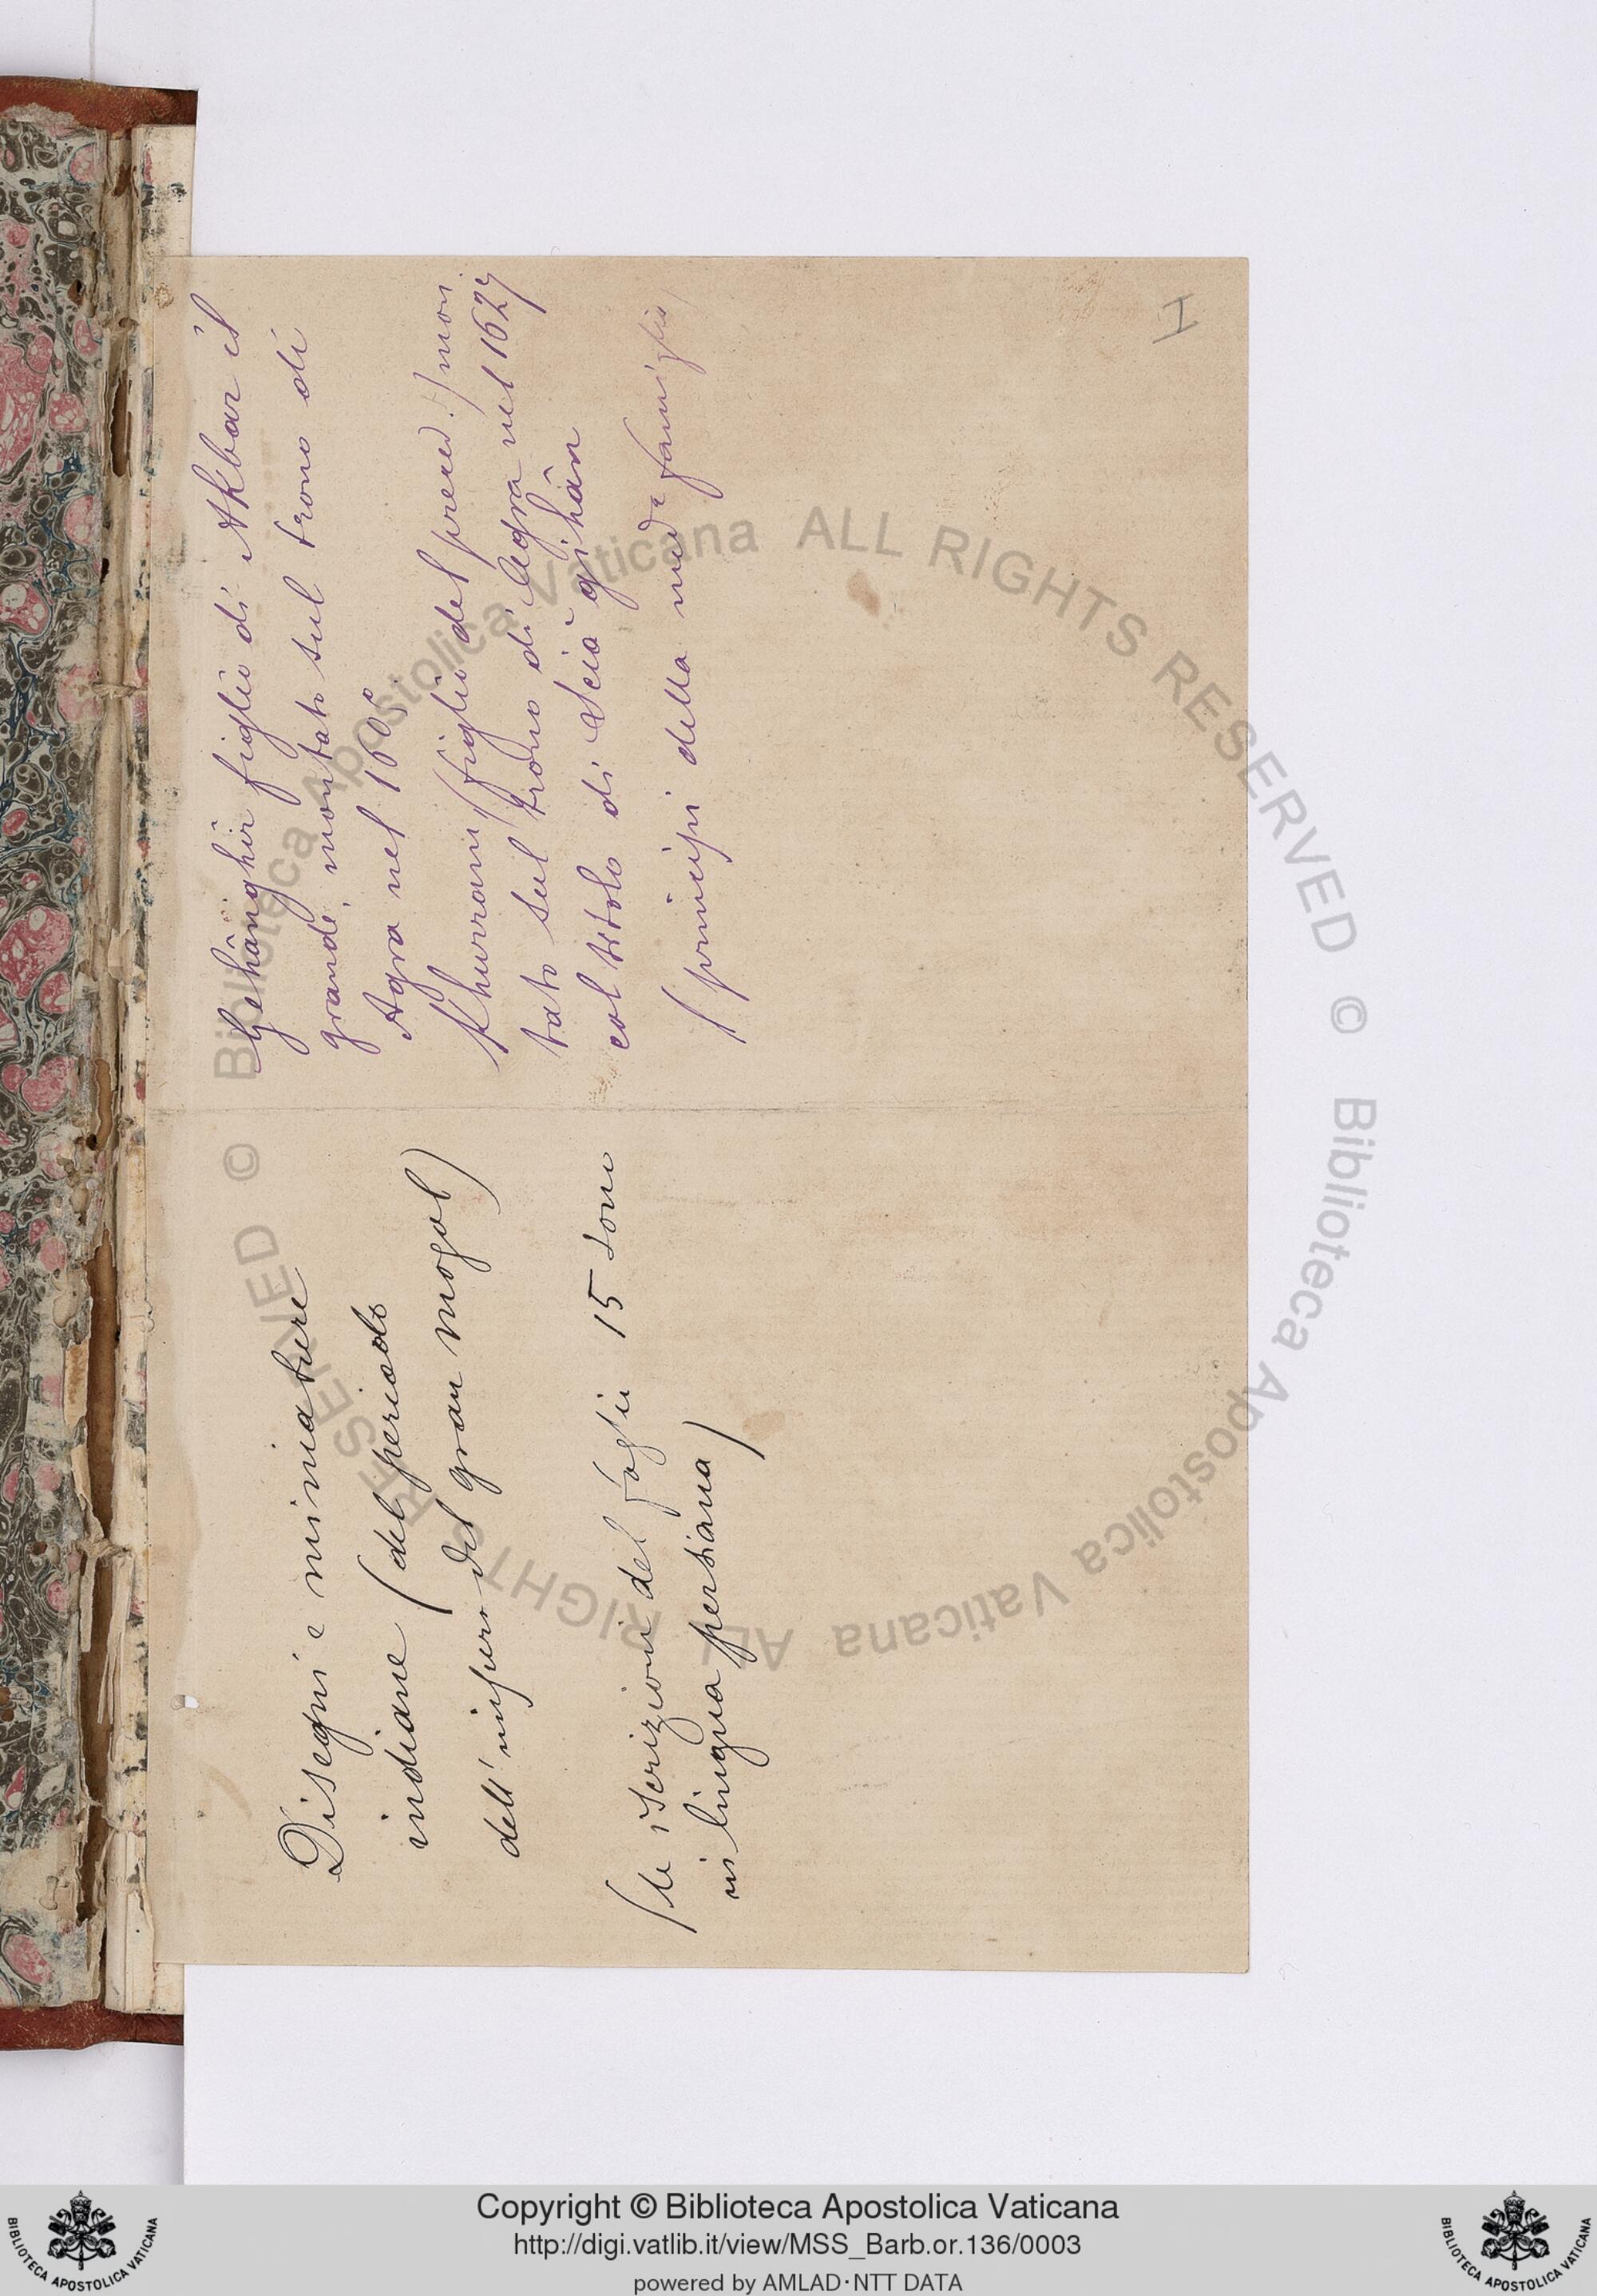 Disegni e miniature
indiane (del periodo
dell'impero del gran mogol)
(le iscrizioni del foglio 15 sono
in lingua persiana)
Gehânghîr figlio di Akbar il
grande, montato sul trono di
Agra nel 1605.
Khurram (figlio del preced.) mon
tato sul trono di Agra nel 1627
col titolo di Scià gihân
(principi della med.a famiglia)
I
© Biblioteca Apostolica Vaticana ALL RIGHTS RESERVED © Biblioteca Apostolica Vaticana ALL RIGHTS RESERVED
Copyright © Biblioteca Apostolica Vaticana
http://digi.vatlib.it/view/MSS_Barb.or.136/0003
powered by AMLAD·NTT DATA
BIBLIOTECA APOSTOLICA VATICANA
BIBLIOTECA APOSTOLICA VATICANA